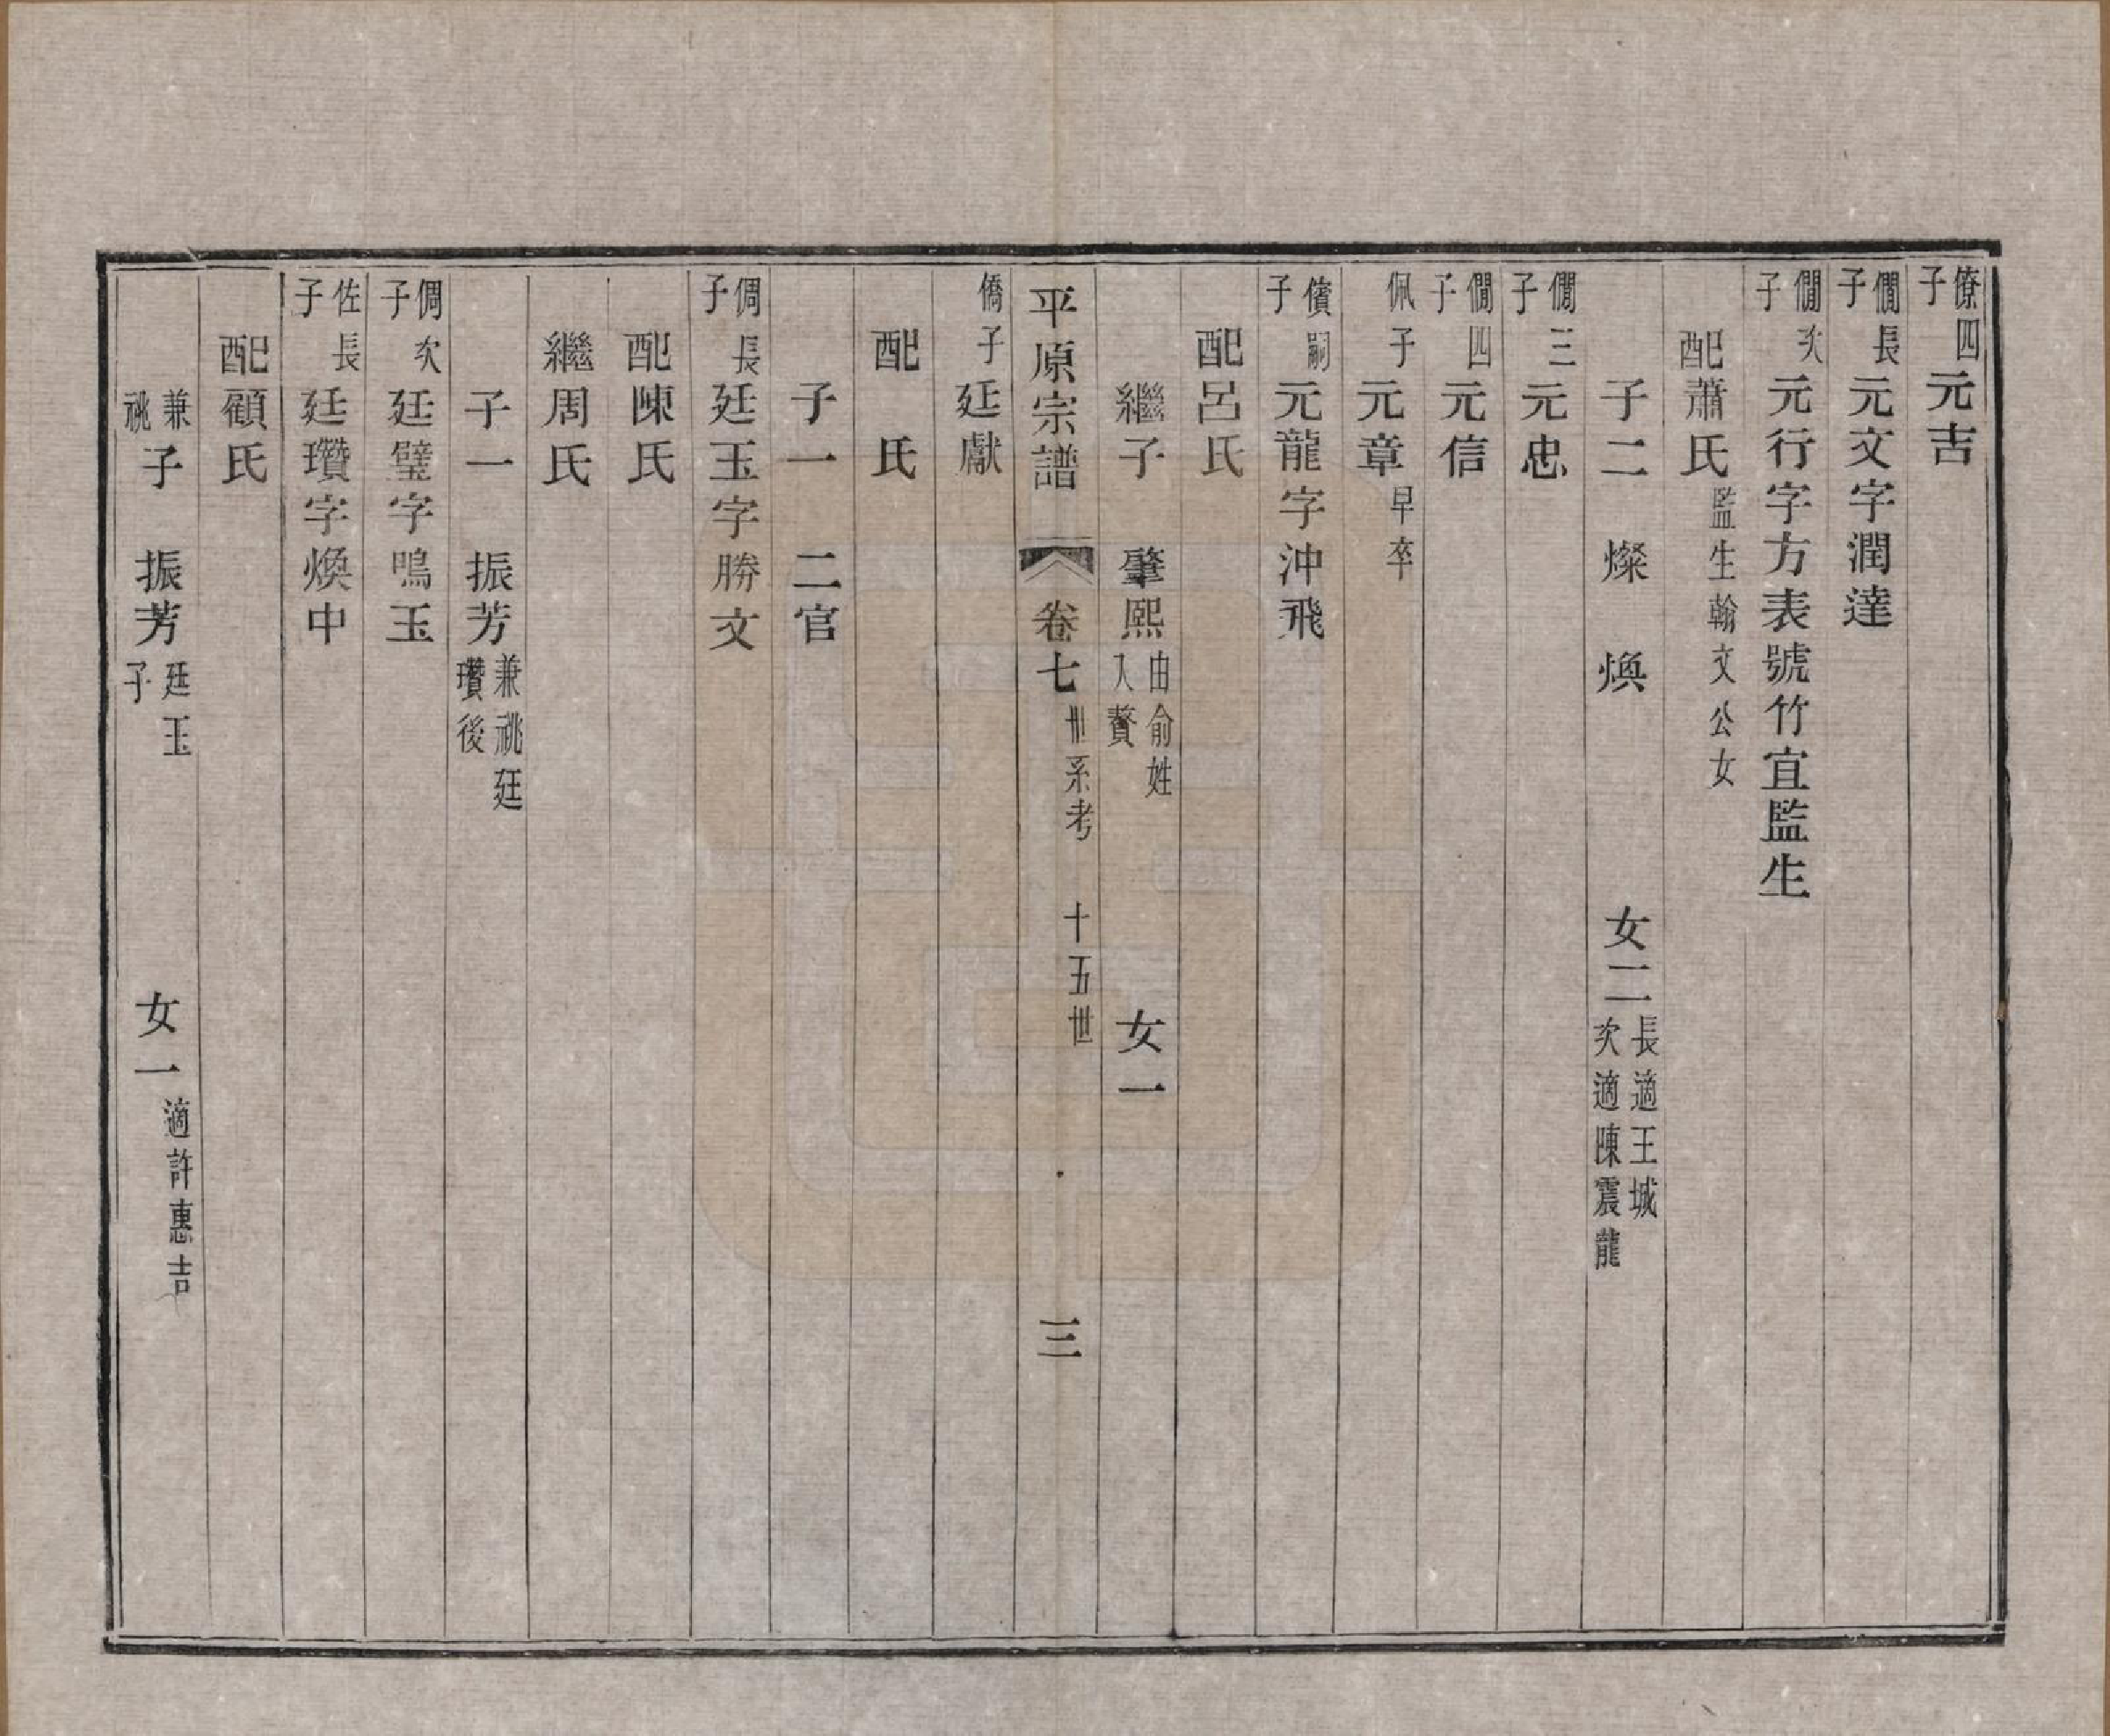 僚四子元吉
僩長子元文字潤達
僩次子元行字方表號竹宜監生
配蕭氏監生翰文公女
子二 燦 煥 女二長適王城次適陳震龍
僩三子元忠
僩四子元信
佩子元章早卒
儐嗣子元龍字沖飛
配呂氏
繼子 肇熙由俞姓入贅 女一
平原宗譜 卷七 世系考 十五世 三
僑子廷獻
配 氏
子一 二官
倜長子廷玉字勝文
配陳氏
繼周氏
子一 振芳兼祧廷瓚後
倜次子廷璧字鳴玉
佐長子廷瓚字煥中
配顧氏
兼祧子 振芳廷玉子 女一適許惠吉